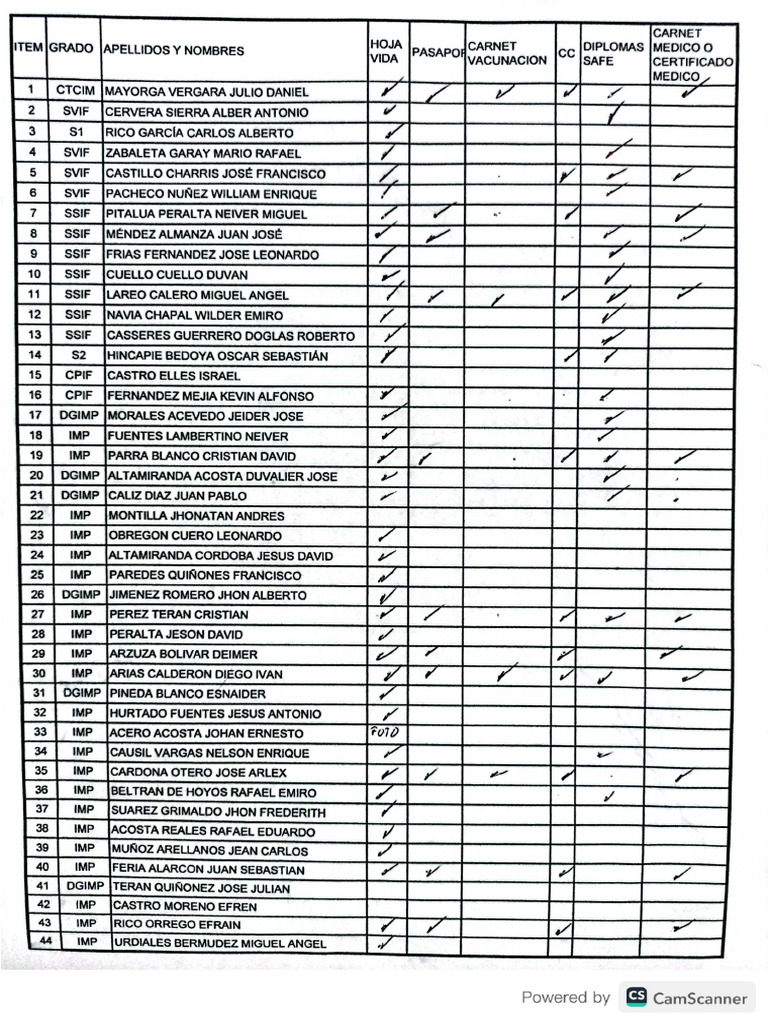 ITEM GRADO APELLIDOS Y NOMBRES HOJA VIDA PASAPOR CARNET VACUNACION CC DIPLOMAS SAFE CARNET MEDICO O CERTIFICADO MEDICO
1 CTCIM MAYORGA VERGARA JULIO DANIEL ✓ ✓ ✓ ✓ ✓ ✓
2 SVIF CERVERA SIERRA ALBER ANTONIO ✓ ✓
3 S1 RICO GARCÍA CARLOS ALBERTO ✓
4 SVIF ZABALETA GARAY MARIO RAFAEL ✓ ✓
5 SVIF CASTILLO CHARRIS JOSÉ FRANCISCO ✓ ✓ ✓ ✓
6 SVIF PACHECO NUÑEZ WILLIAM ENRIQUE ✓ ✓
7 SSIF PITALUA PERALTA NEIVER MIGUEL ✓ ✓ ✓ ✓
8 SSIF MÉNDEZ ALMANZA JUAN JOSÉ ✓ ✓ ✓ ✓
9 SSIF FRIAS FERNANDEZ JOSE LEONARDO ✓ ✓
10 SSIF CUELLO CUELLO DUVAN ✓ ✓
11 SSIF LAREO CALERO MIGUEL ANGEL ✓ ✓ ✓ ✓ ✓ ✓
12 SSIF NAVIA CHAPAL WILDER EMIRO ✓ ✓
13 SSIF CASSERES GUERRERO DOGLAS ROBERTO ✓ ✓
14 S2 HINCAPIE BEDOYA OSCAR SEBASTIÁN ✓ ✓ ✓
15 CPIF CASTRO ELLES ISRAEL
16 CPIF FERNANDEZ MEJIA KEVIN ALFONSO ✓ ✓
17 DGIMP MORALES ACEVEDO JEIDER JOSE ✓ ✓
18 IMP FUENTES LAMBERTINO NEIVER ✓ ✓
19 IMP PARRA BLANCO CRISTIAN DAVID ✓ ✓ ✓ ✓ ✓
20 DGIMP ALTAMIRANDA ACOSTA DUVALIER JOSE ✓ ✓
21 DGIMP CALIZ DIAZ JUAN PABLO ✓ ✓
22 IMP MONTILLA JHONATAN ANDRES
23 IMP OBREGON CUERO LEONARDO ✓
24 IMP ALTAMIRANDA CORDOBA JESUS DAVID ✓
25 IMP PAREDES QUIÑONES FRANCISCO ✓
26 DGIMP JIMENEZ ROMERO JHON ALBERTO ✓
27 IMP PEREZ TERAN CRISTIAN ✓ ✓ ✓ ✓ ✓
28 IMP PERALTA JESON DAVID ✓
29 IMP ARZUZA BOLIVAR DEIMER ✓ ✓ ✓ ✓
30 IMP ARIAS CALDERON DIEGO IVAN ✓ ✓ ✓ ✓ ✓ ✓
31 DGIMP PINEDA BLANCO ESNAIDER ✓
32 IMP HURTADO FUENTES JESUS ANTONIO ✓
33 IMP ACERO ACOSTA JOHAN ERNESTO FOTO
34 IMP CAUSIL VARGAS NELSON ENRIQUE ✓ ✓
35 IMP CARDONA OTERO JOSE ARLEX ✓ ✓ ✓ ✓ ✓
36 IMP BELTRAN DE HOYOS RAFAEL EMIRO ✓ ✓
37 IMP SUAREZ GRIMALDO JHON FREDERITH ✓
38 IMP ACOSTA REALES RAFAEL EDUARDO ✓
39 IMP MUÑOZ ARELLANOS JEAN CARLOS ✓
40 IMP FERIA ALARCON JUAN SEBASTIAN ✓ ✓ ✓ ✓
41 DGIMP TERAN QUIÑONEZ JOSE JULIAN
42 IMP CASTRO MORENO EFREN
43 IMP RICO ORREGO EFRAIN ✓ ✓ ✓ ✓
44 IMP URDIALES BERMUDEZ MIGUEL ANGEL ✓
Powered by CS CamScanner